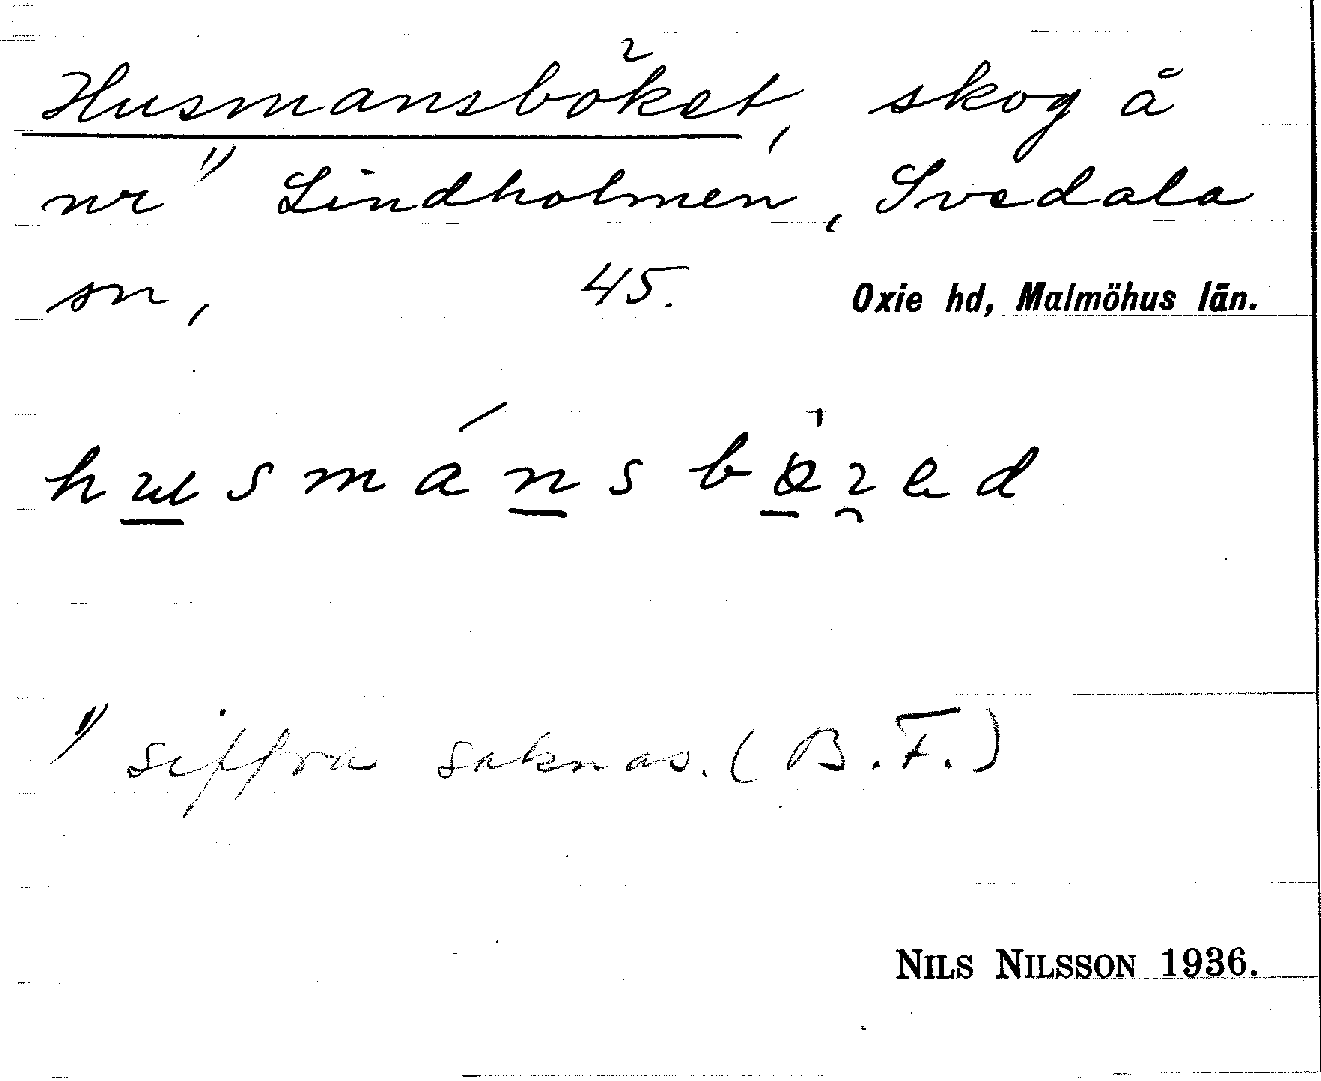 Husmansböket, skog å
nr ¹⁾ Lindholmen, Svedala
sn, 45. Oxie hd, Malmöhus län.
husmánsbøꝛed
¹⁾ siffra saknas. (B.F.)
NILS NILSSON 1936.